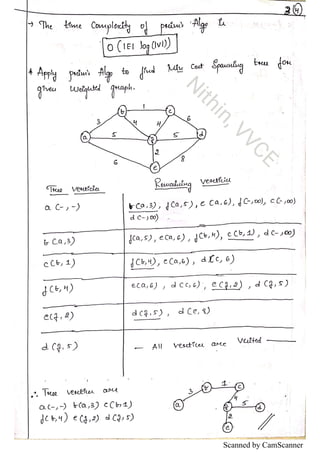 2 4
→ The time Complexity of prim's Algo is
O(|E| log |V|)
* Apply prim's Algo to find Min Cost Spanning tree for
given Weighted graph.
b 1 c
3 4 4 6
a 5 f 5 d
2
6 8
e
Nithin, VVCE
Tree vertices Remaining vertices
a(-,-) b(a,3), f(a,5), e(a,6), f(-,∞), c(-,∞)
d(-,∞)
b(a,3) f(a,5), e(a,6), f(b,4), c(b,1), d(-,∞)
c(b,1) f(b,4), e(a,6), d(c,6)
f(b,4) e(a,6), d(c,6), e(f,2), d(f,5)
e(f,2) d(f,5), d(e,8)
d(f,5) — All vertices are visited
∴ Tree vertices are
a(-,-) b(a,3) c(b,1)
f(b,4) e(f,2) d(f,5)
b 1 c
3 4
a f 5 d
2
e
Scanned by CamScanner